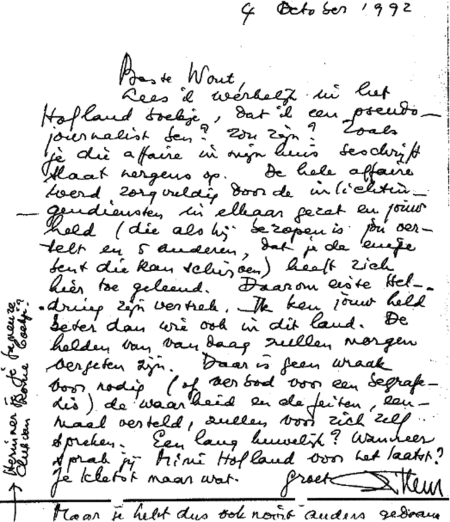 4 October 1992
Beste Wout,
Lees 'k werkelijk in het
Hofland boekje, dat ik een pseudo-
journalist ben? Zou zijn? Zoals
je die affaire in mijn huis beschrijft
slaat nergens op. De hele affaire
werd zorgvuldig door de inlichtin-
gendiensten in elkaar gezet en jouw
held (die als hij bezopen is jou ver-
telt en 5 anderen, dat je de enige
bent die kan schrijven) heeft zich
hier toe geleend. Daarom eiste Hel-
dring zijn vertrek. Ik ken jouw held
beter dan wie ook in dit land. De
helden van vandaag zullen morgen
vergeten zijn. Daar is geen wraak
voor nodig (of verbod voor een begrafe-
nis) de waarheid en de feiten, een-
maal verteld, zullen voor zich zelf
spreken. Een lang huwelijk? Wanneer
sprak jij Mimi Hofland voor het laatst?
Je kletst maar wat. groet
Maar je hebt dus ook nooit anders gedaan
Herinner je je
boekje?